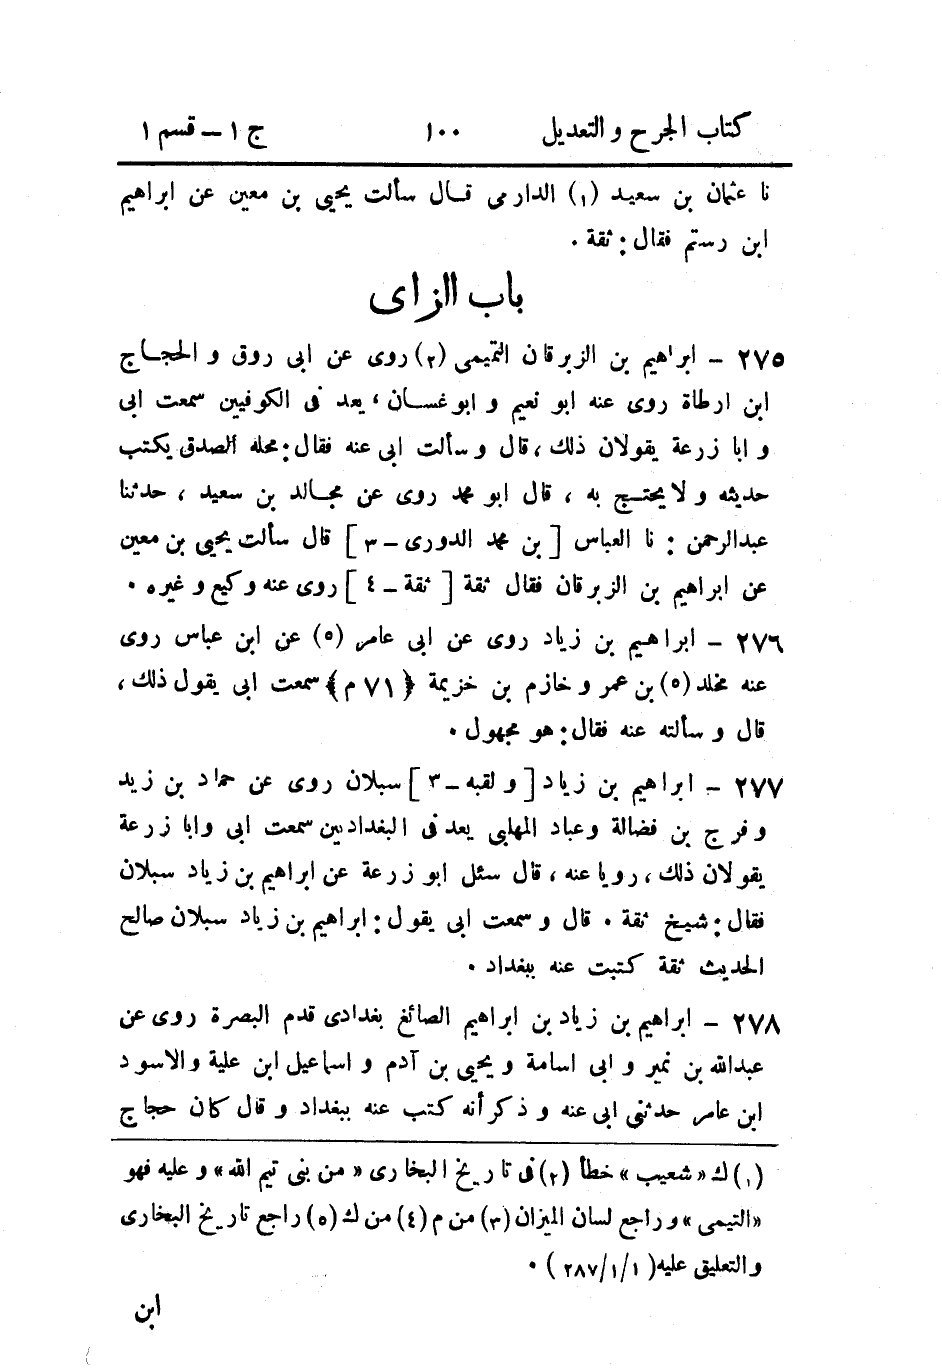 كتاب الجرح و التعديل ١٠٠ ج ١ – قسم ١
نا عثمان بن سعيد (١) الدارمى قال سألت يحيى بن معين عن ابراهيم
ابن رستم فقال: ثقة .
باب الزاى
٢٧٥ – ابراهيم بن الزبرقان التميمى (٢) روى عن ابى روق و الحجاج
ابن ارطاة روى عنه ابو نعيم و ابوغسان، يعد فى الكوفيين سمعت ابى
و ابا زرعة يقولان ذلك، قال و سألت ابى عنه فقال: محله الصدق يكتب
حديثه و لا يحتج به ، قال ابو محمد روى عن مجالد بن سعيد ، حدثنا
عبدالرحمن : نا العباس [ بن محمد الدورى – ٣ ] قال سألت يحيى بن معين
عن ابراهيم بن الزبرقان فقال ثقة [ ثقة – ٤ ] روى عنه وكيع و غيره .
٢٧٦ – ابراهيم بن زياد روى عن ابى عامر (٥) عن ابن عباس روى
عنه مخلد (٥) بن عمر و خازم بن خزيمة ﴿ ٧١ م ﴾ سمعت ابى يقول ذلك،
قال و سألته عنه فقال: هو مجهول .
٢٧٧ – ابراهيم بن زياد [ و لقبه – ٣ ] سبلان روى عن حماد بن زيد
و فرج بن فضالة وعباد المهلبى يعد فى البغداديين سمعت ابى وابا زرعة
يقولان ذلك، رويا عنه ، قال سئل ابو زرعة عن ابراهيم بن زياد سبلان
فقال: شيخ ثقة . قال و سمعت ابى يقول: ابراهيم بن زياد سبلان صالح
الحديث ثقة كتبت عنه ببغداد .
٢٧٨ – ابراهيم بن زياد بن ابراهيم الصائغ بغدادى قدم البصرة روى عن
عبدالله بن نمير و ابى اسامة و يحيى بن آدم و اسماعيل ابن علية والاسود
ابن عامر حدثنى ابى عنه و ذكر أنه كتب عنه ببغداد و قال كان حجاج
(١) ك «شعيب» خطأ (٢) فى تاريخ البخارى « من بنى تيم الله » و عليه فهو
«التيمى» و راجع لسان الميزان (٣) من م (٤) من ك (٥) راجع تاريخ البخارى
والتعليق عليه ( ١/١/٢٨٧ ) .
ابن